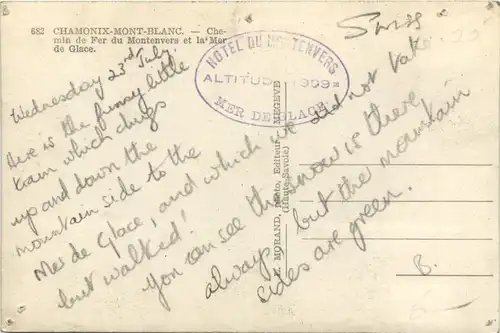 682 CHAMONIX-MONT-BLANC. — Che-
min de Fer du Montenvers et la Mer
de Glace.
Swiss
HOTEL DU MONTENVERS
ALTITUDE 1909m
MER DE GLACE
Wednesday 23rd July.
Here is the funny little
train which chugs
up and down the
mountain side to the
Mer de Glace, and which we did not take
but walked!
You can see the snow is there
always but the mountain
sides are green.
E. MORAND, Photo, Editeur, MEGEVE
(Haute-Savoie)
B.